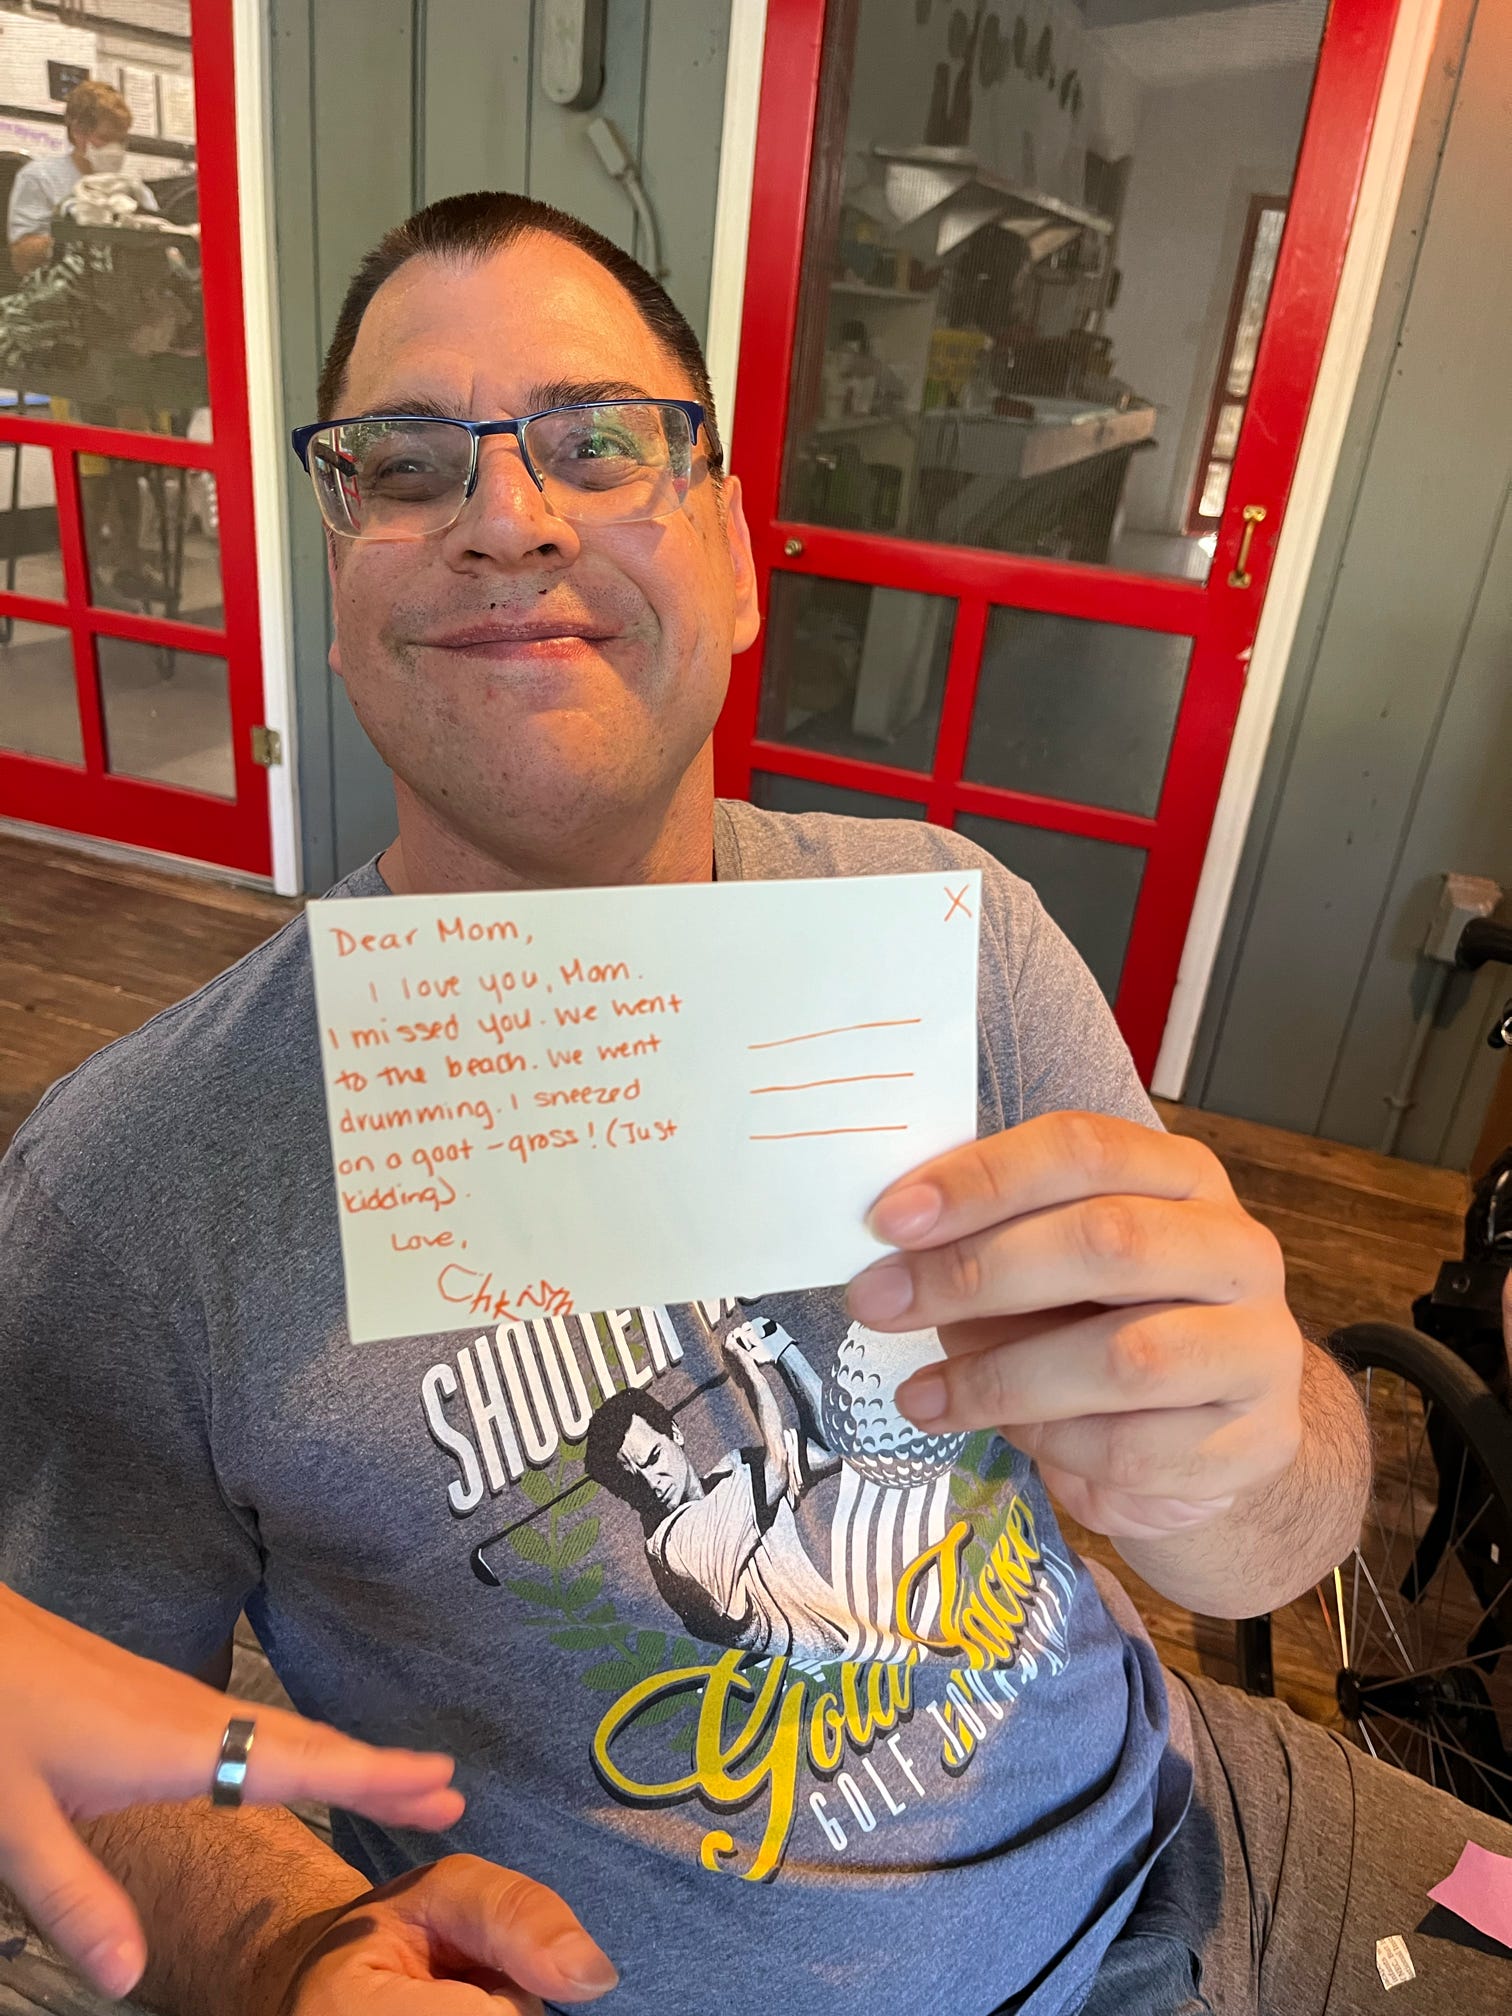 X
Dear Mom,
I love you, Mom.
I missed you. We went
to the beach. We went
drumming. I sneezed
on a goat - gross! (Just
kidding).
Love,
SHOOTER
Gold Jacket
GOLF TOURNAMENT